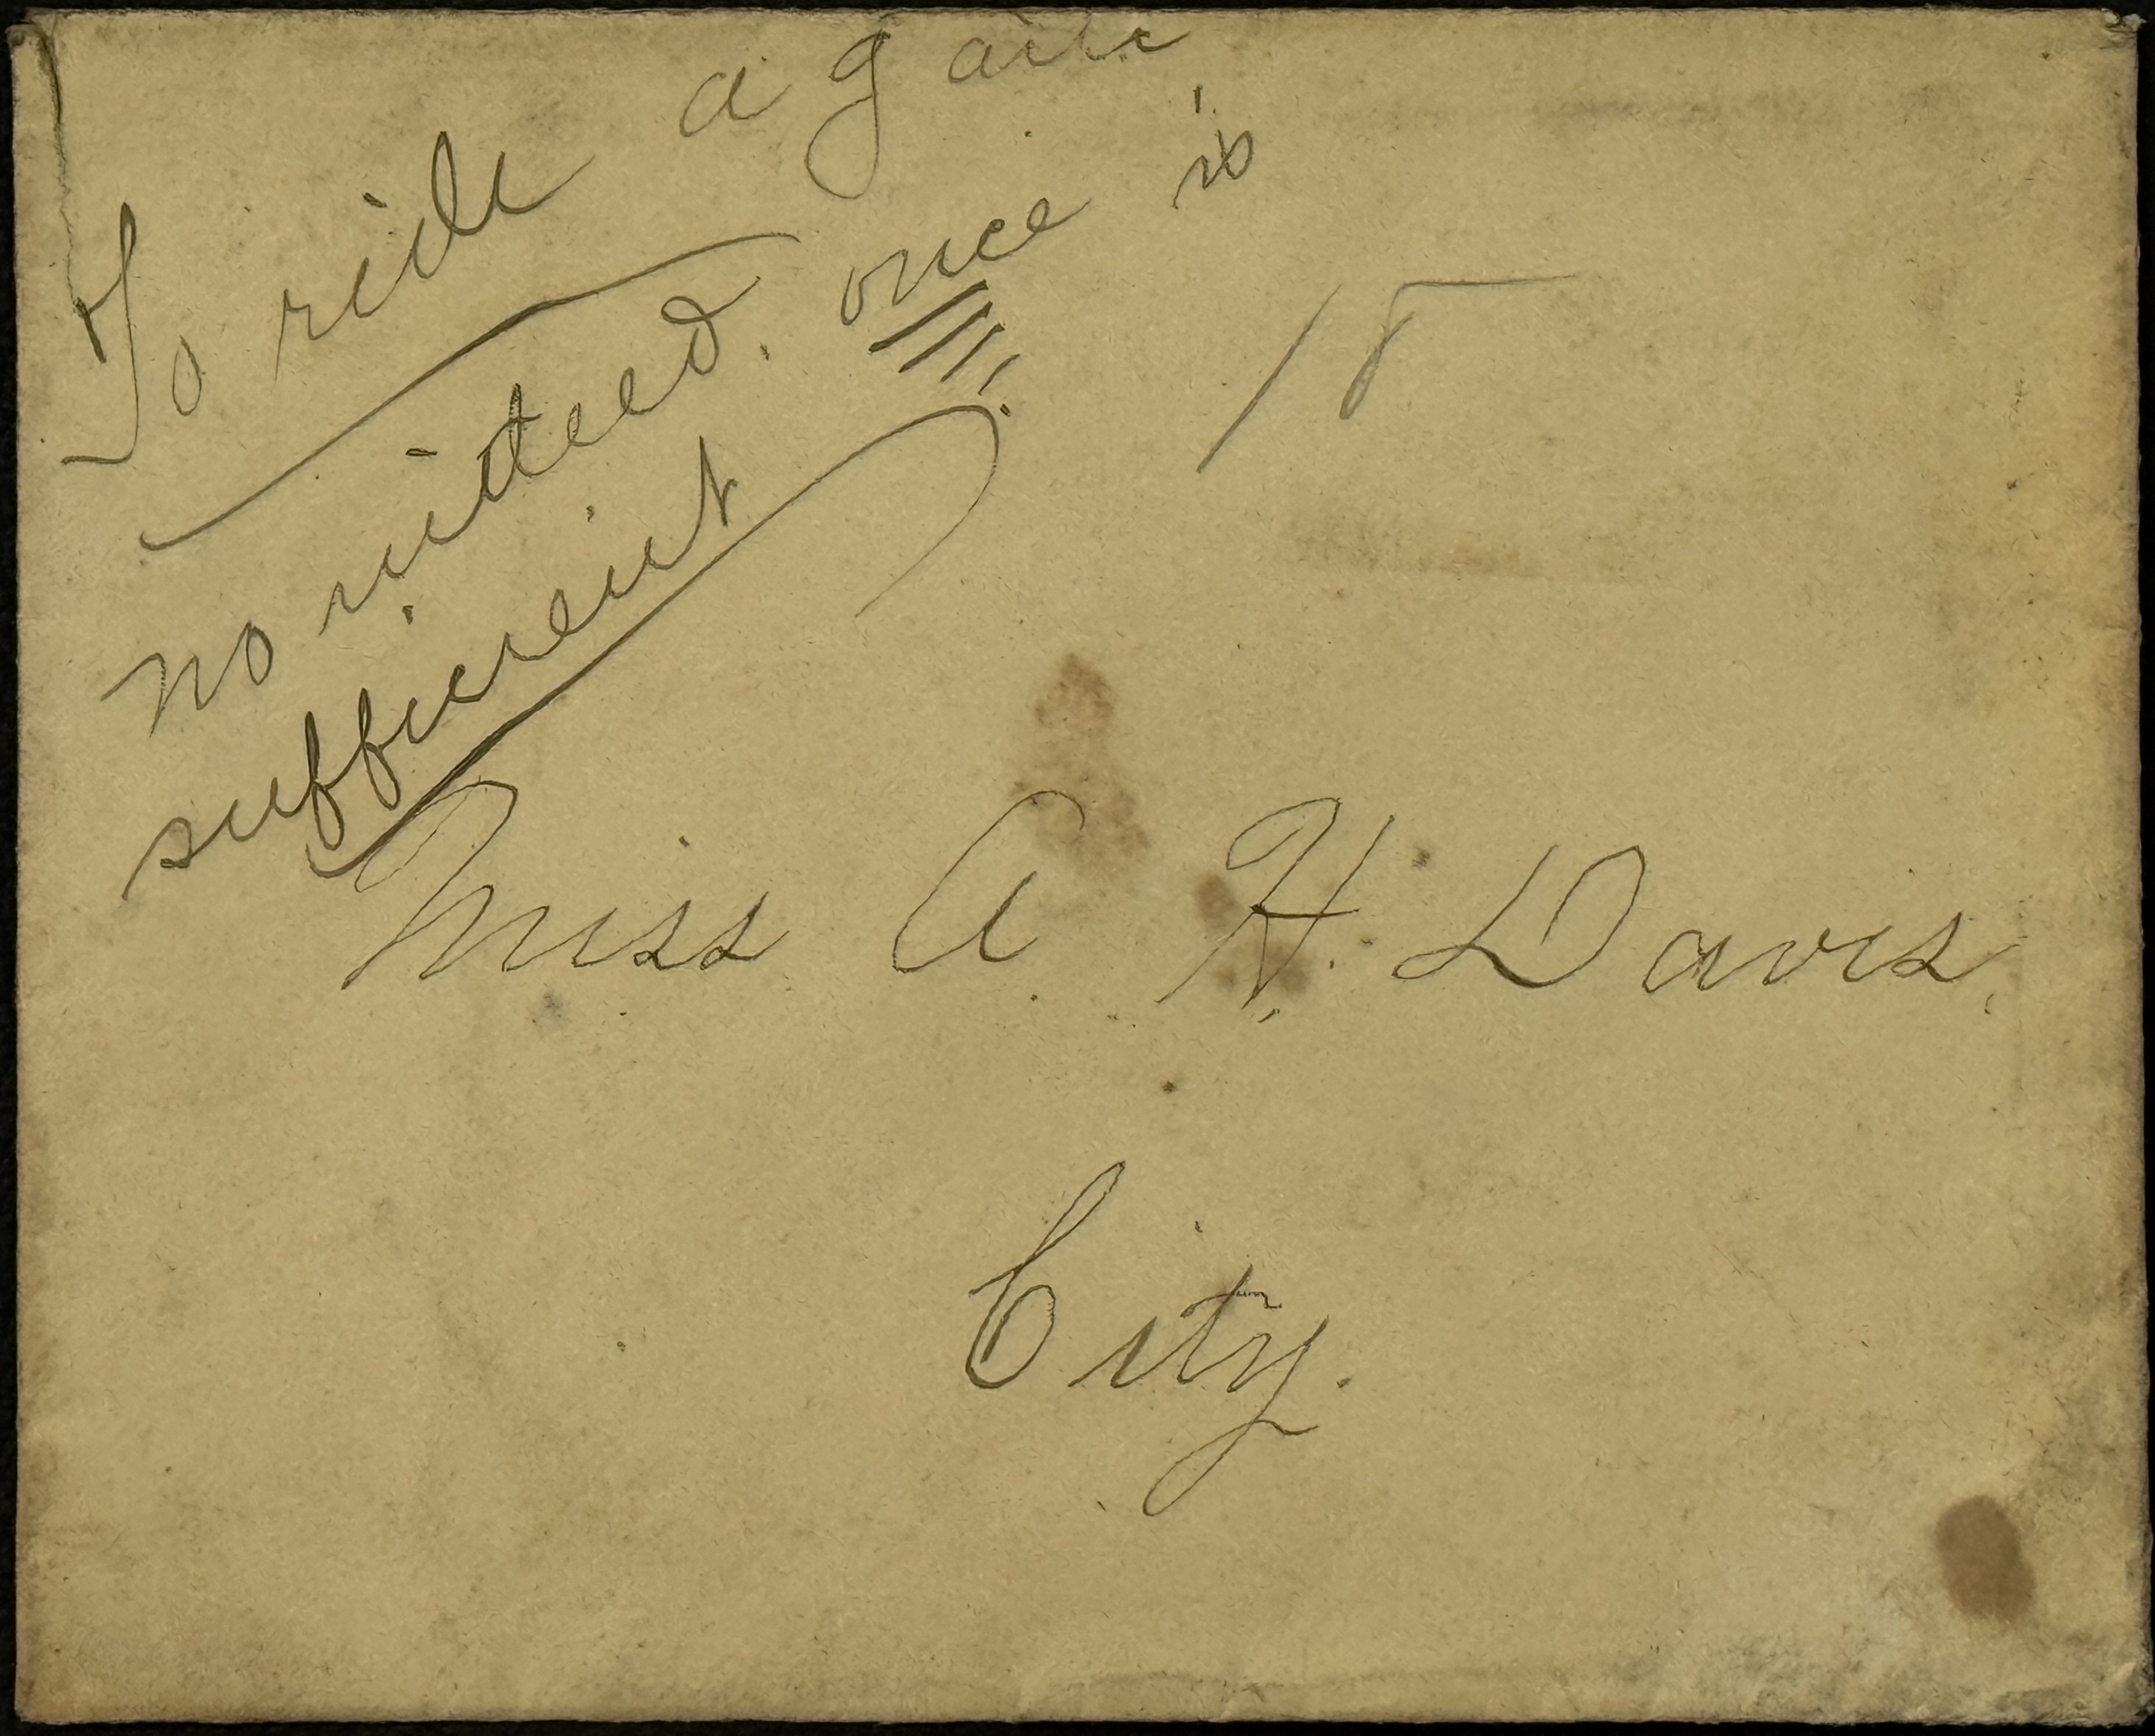 To ride again,
no indeed. once is
sufficient
15
Miss A. H. Davis,
City.